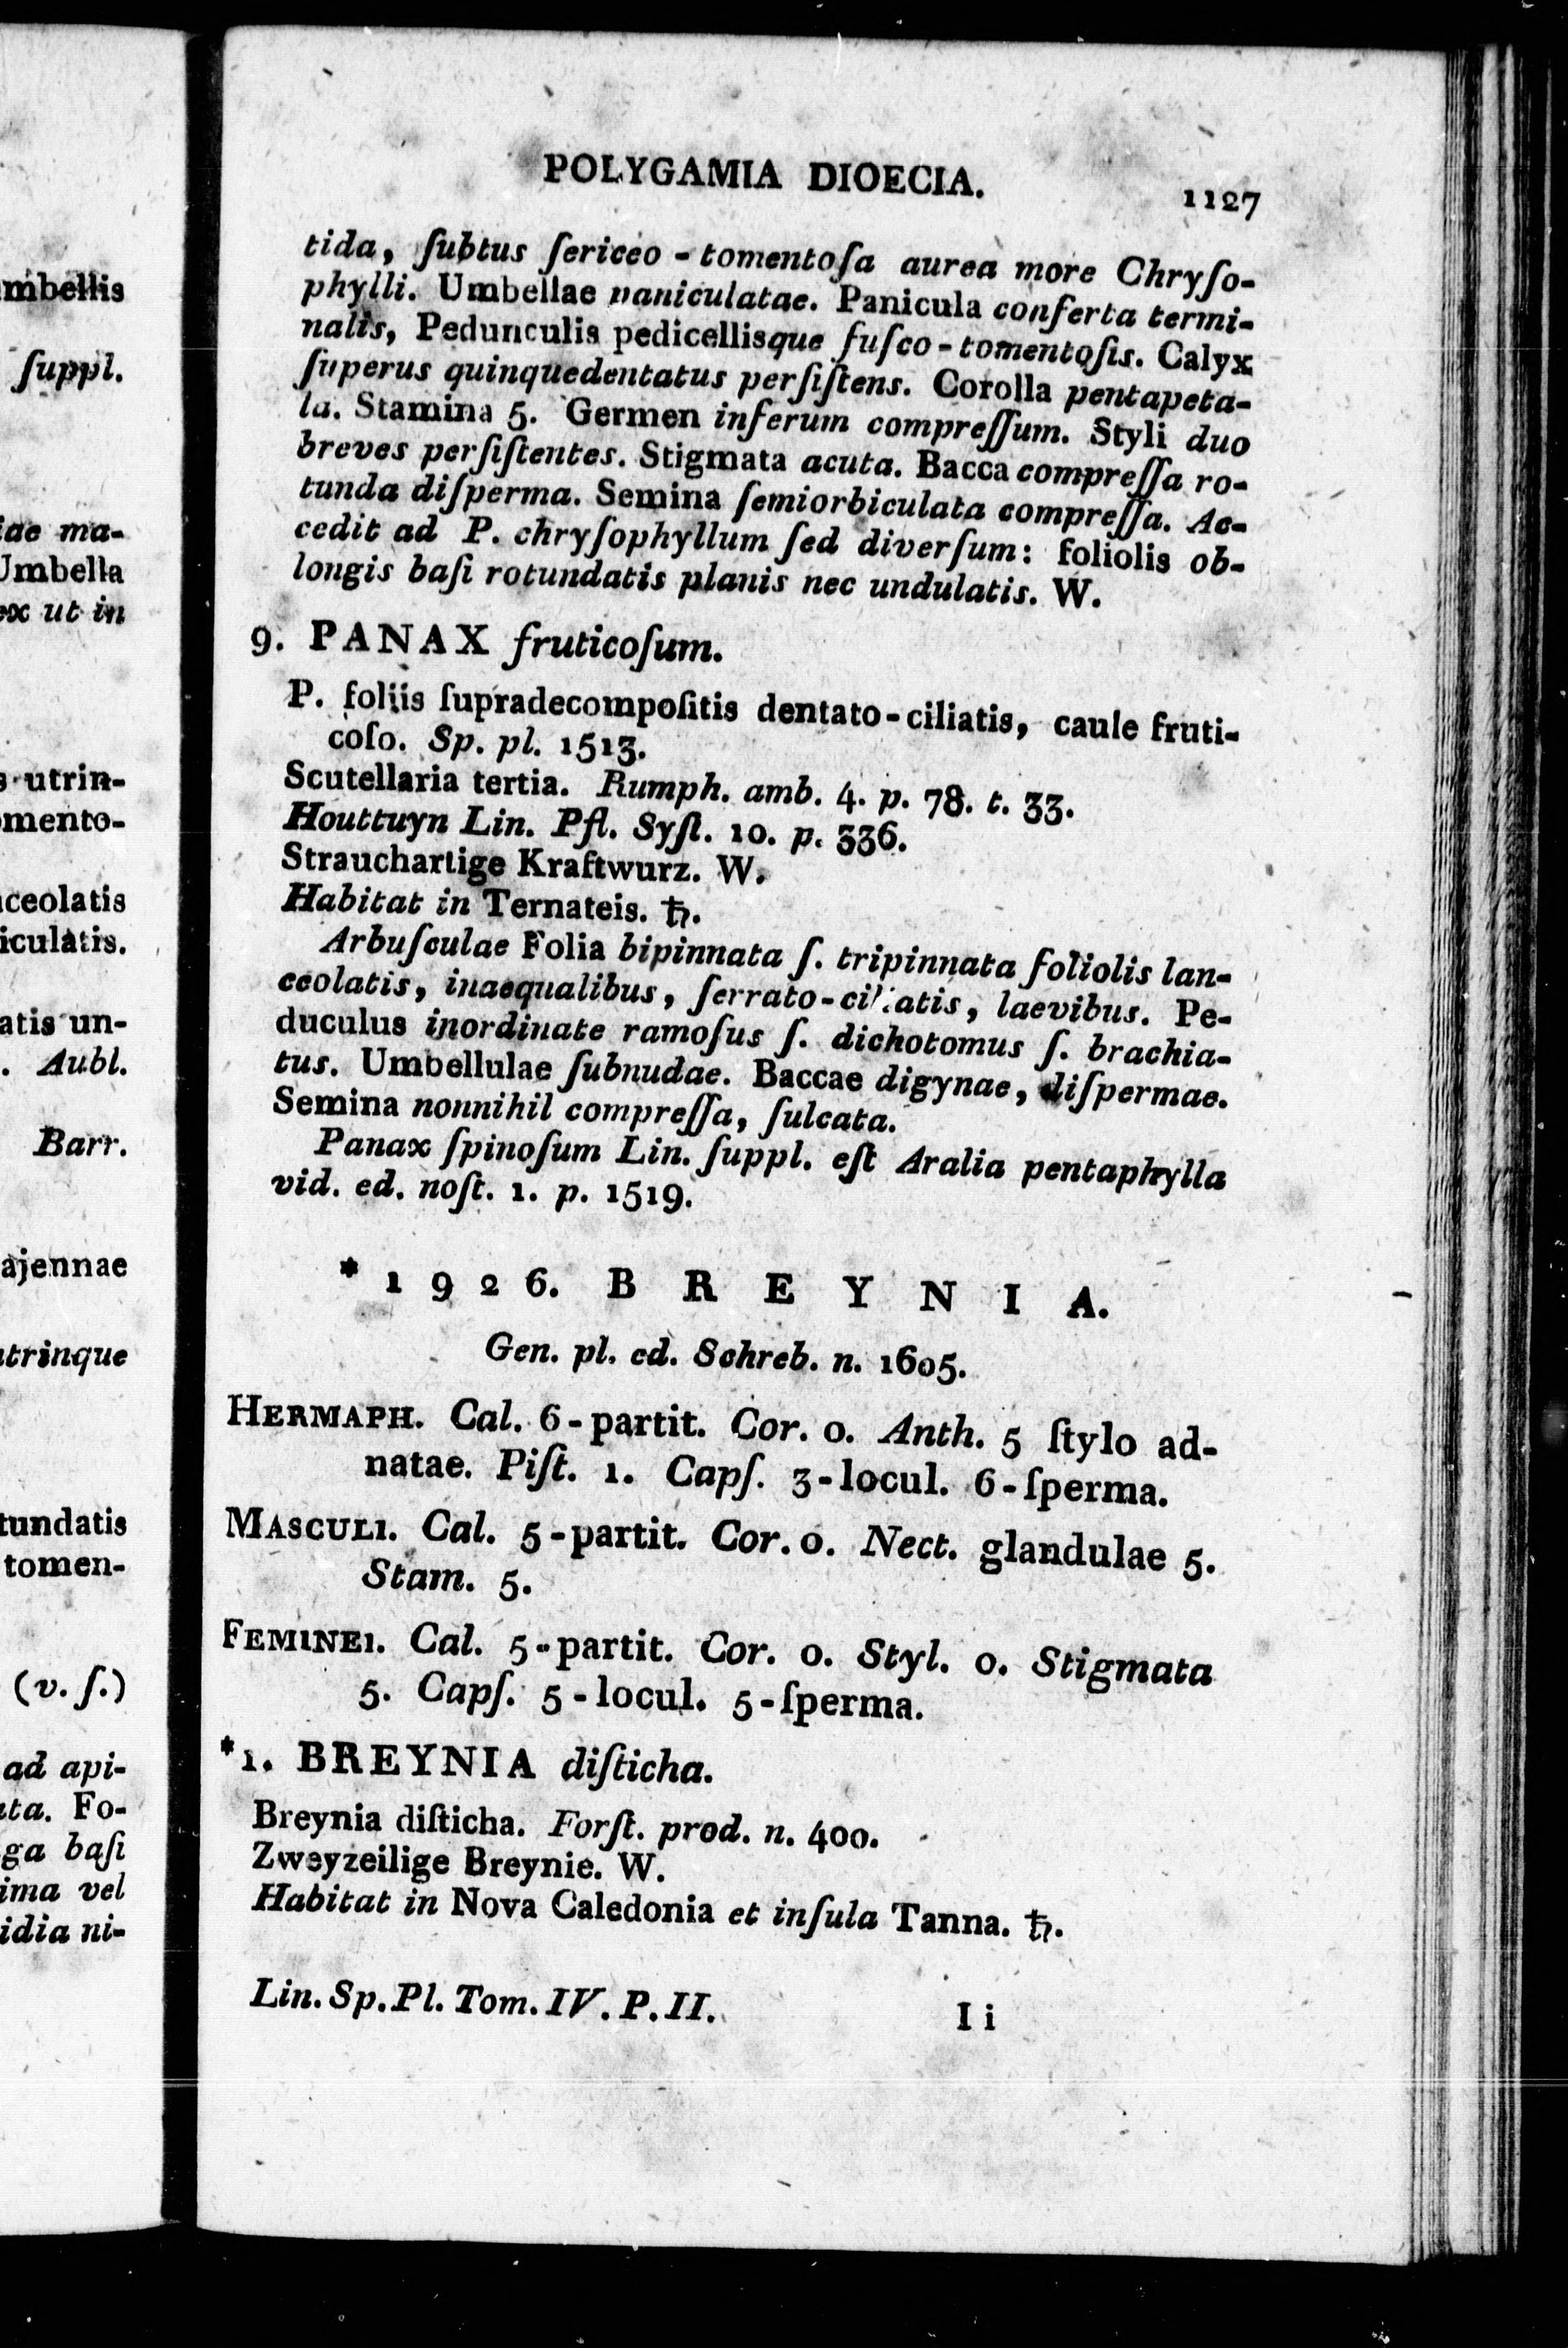 mbellis
ſuppl.
ma-
Umbella
ut in
utrin-
ceolatis
iculatis.
atis un-
Aubl.
Barr.
ajennae
utrinque
tundatis
tomen-
(v. ſ.)
ad api-
Fo-
baſi
vel
ni-
POLYGAMIA DIOECIA. 1127
tida, ſubtus ſericeo-tomentoſa aurea more Chryſo-
phylli. Umbellae paniculatae. Panicula conferta termi-
nalis, Pedunculis pedicellisque fuſco-tomentoſis. Calyx
ſuperus quinquedentatus perſiſtens. Corolla pentapeta-
la. Stamina 5. Germen inferum compreſſum. Styli duo
breves perſiſtentes. Stigmata acuta. Bacca compreſſa ro-
tunda diſperma. Semina ſemiorbiculata compreſſa. Ac-
cedit ad P. chryſophyllum ſed diverſum: foliolis ob-
longis baſi rotundatis planis nec undulatis. W.
9. PANAX fruticoſum.
P. foliis ſupradecompoſitis dentato-ciliatis, caule fruti-
coſo. Sp. pl. 1513.
Scutellaria tertia. Rumph. amb. 4. p. 78. t. 33.
Houttuyn Lin. Pfl. Syſt. 10. p. 336.
Strauchartige Kraftwurz. W.
Habitat in Ternateis. ♄.
Arbuſculae Folia bipinnata ſ. tripinnata foliolis lan-
ceolatis, inaequalibus, ſerrato-ciliatis, laevibus. Pe-
duculus inordinate ramoſus ſ. dichotomus ſ. brachia-
tus. Umbellulae ſubnudae. Baccae digynae, diſpermae.
Semina nonnihil compreſſa, ſulcata.
Panax ſpinoſum Lin. ſuppl. eſt Aralia pentaphylla
vid. ed. noſt. 1. p. 1519.
* 1926. BREYNIA.
Gen. pl. ed. Schreb. n. 1605.
HERMAPH. Cal. 6-partit. Cor. 0. Anth. 5 ſtylo ad-
natae. Piſt. 1. Capſ. 3-locul. 6-ſperma.
MASCULI. Cal. 5-partit. Cor. 0. Nect. glandulae 5.
Stam. 5.
FEMINEI. Cal. 5-partit. Cor. 0. Styl. 0. Stigmata
5. Capſ. 5-locul. 5-ſperma.
*1. BREYNIA diſticha.
Breynia diſticha. Forſt. prod. n. 400.
Zweyzeilige Breynie. W.
Habitat in Nova Caledonia et inſula Tanna. ♄.
Lin. Sp. Pl. Tom. IV. P. II. I i